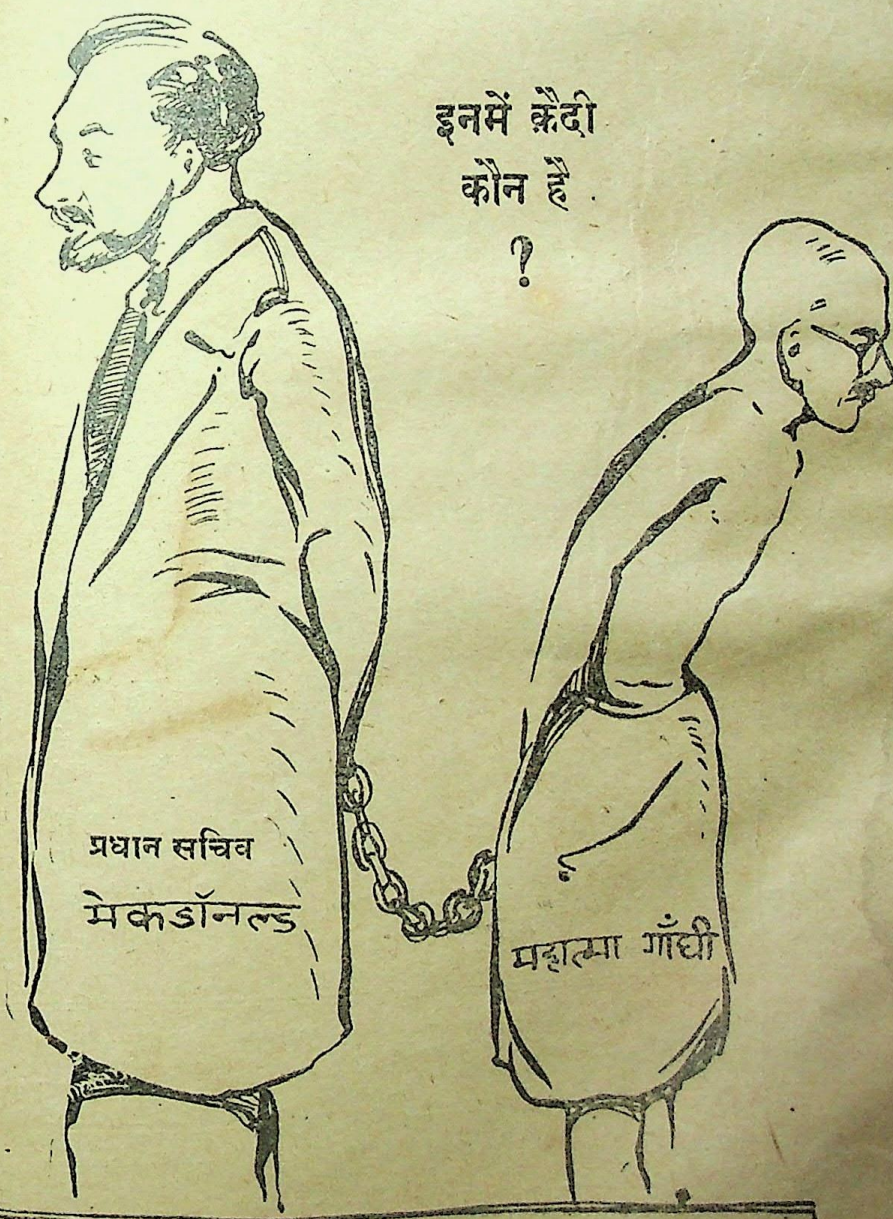 इनमें क़ैदी
कौन है
?
प्रधान सचिव
मेकडॉनल्ड
महात्मा गाँधी